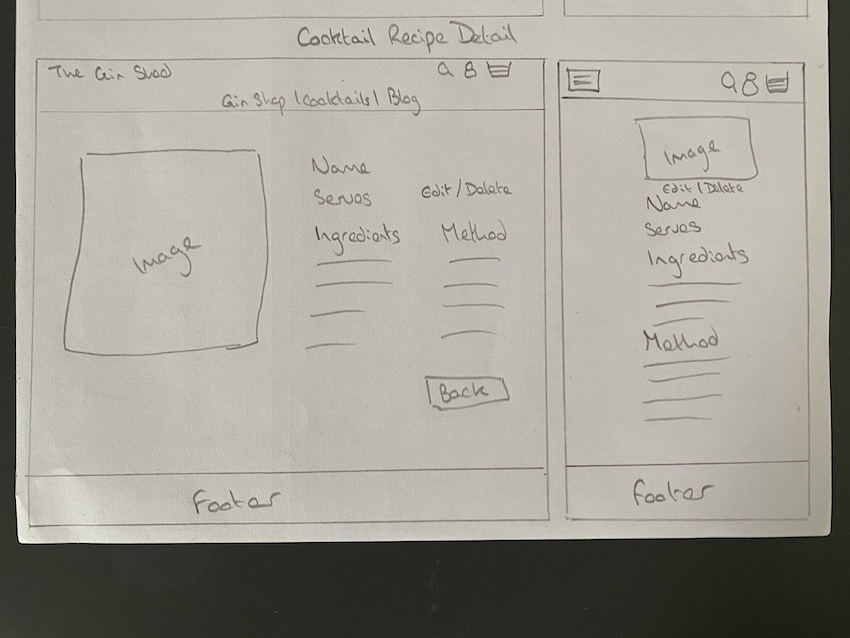 Cocktail Recipe Detail
The Gin Shed
Gin Shop | Cocktails | Blog
Image
Name
Serves
Edit / Delete
Ingredients
Method
Back
Footer
Image
Edit / Delete
Name
Serves
Ingredients
Method
Footer